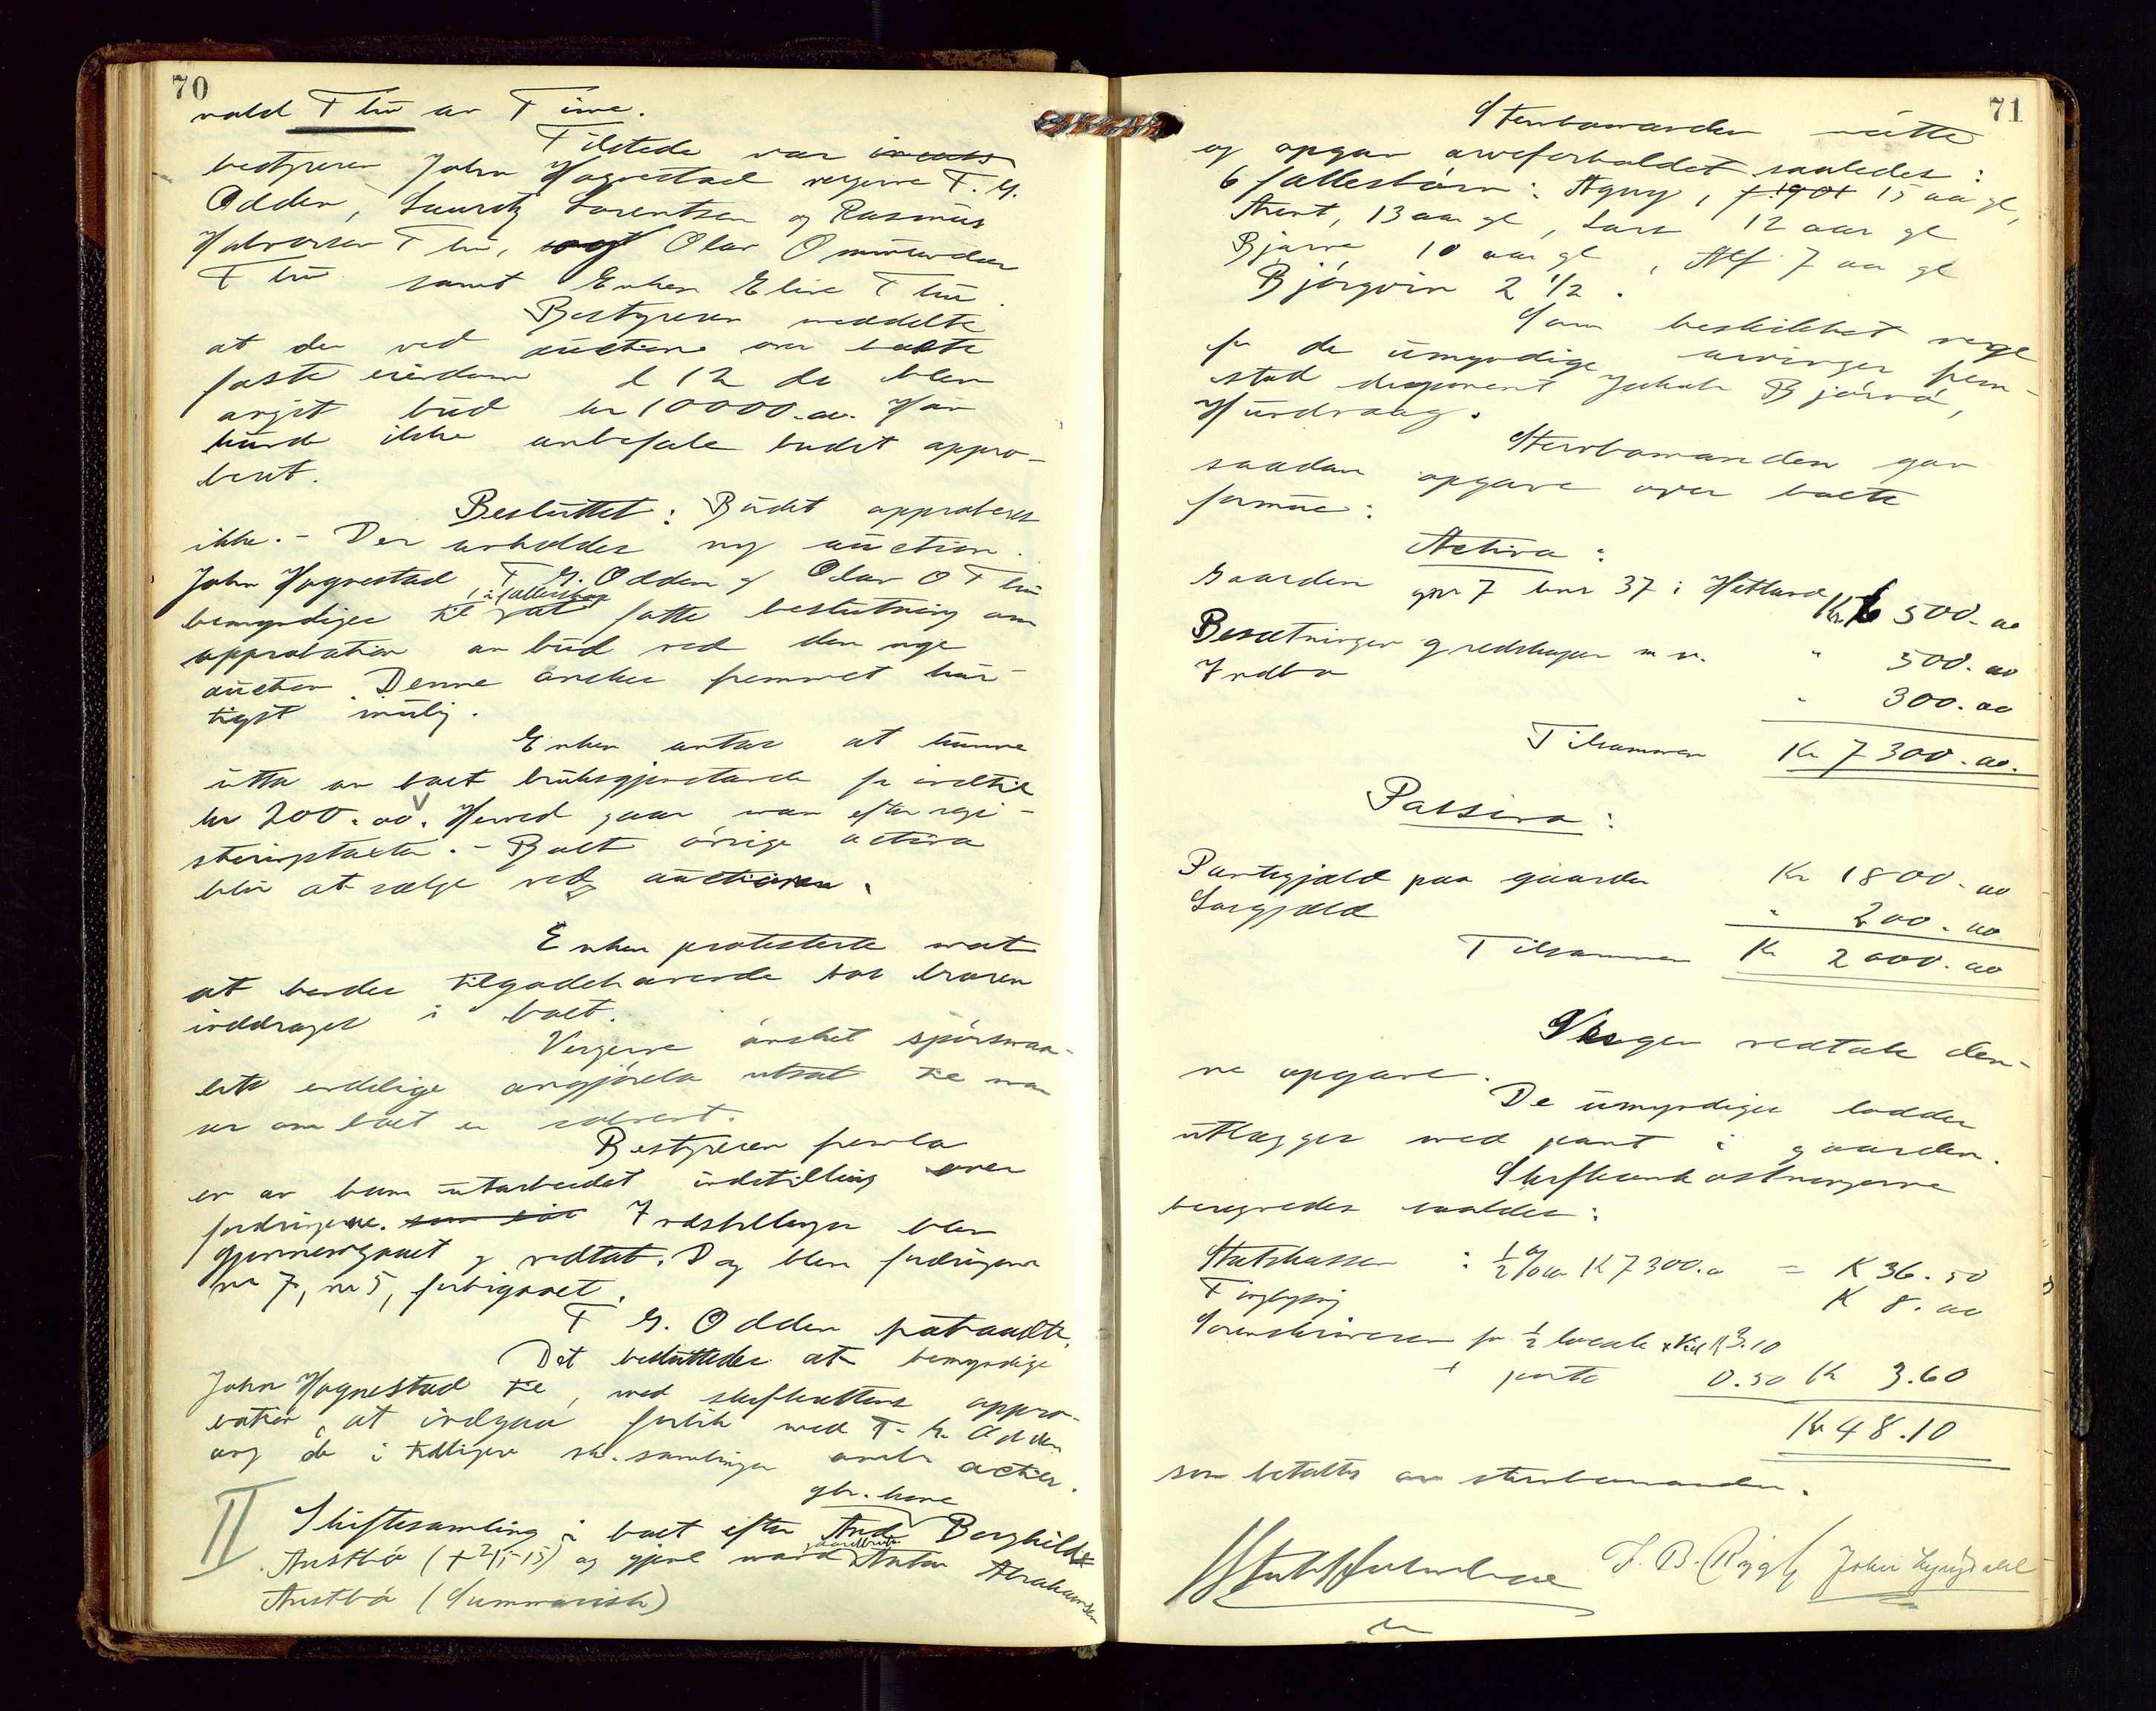 70
vald Thu av Time.
Tilstede var
bestyreren John Hognestad vergerne T. G.
Odden, Lauritz Lorentsen og Rasmus
Halvorsen Thu, Olav Omundsen
Thu samt Enken Eline Thu.
Bestyreren meddelte
at der ved auction over boets
faste eiendom d 12 ds blev
avgit bud kr 10000.oo. Han
kunde ikke anbefale budet appro-
bert.
Besluttet: Budet approberes
ikke. - Der avholdes ny auction.
John Hognestad, T G. Odden og Olav O Thu
i fællesskap
bemyndiges til at fatte beslutning om
approbation av bud ved den nye
auction. Denne ønskes fremmet hur-
tigst mulig.
Enken antar at kunne
utta av boet bruksgjenstande for indtil
kr 200.oo. Herved gaar man efter regi-
steringstaxten. - Boets øvrige activa
blir at sælge ved auctionen.
Enken protesterte mot
at hendes tilgodehavende hos broren
inddrages i boet.
Vergerne ønsket spørsmaa-
lets endelige avgjørelse utsat til man
ser om boet er solvent.
Bestyreren fremla
en av ham utarbeidet indstilling over
fordringerne. Indstillingen blev
gjennemgaaet og vedtat. Dog blev fordringene
nr 7, nr 5, forbigaaet.
T G. Odden fratraadte.
Det besluttedes at bemyndige
John Hognestad til, med skifterettens appro-
bation, at indgaa forlik med T. G. Odden
ang de i tidligere sk.samlinger omh. actier.
II
gbr. kone
Skiftesamling i boet efter And Borghild
Austbø (+ 2/5-15) og gjenl mand gaardbruk Anton Abrahamsen
Austbø (Summarisk)
71
Stervbomanden møtte
og opgav arveforholdet saaledes:
6 fællesbørn: Agny, f. 1901 15 aar gl,
Arent, 13 aar gl, Lars 12 aar gl
Bjarne 10 aar gl, Alf 7 aar gl
Bjørgvin 2 1/2.
Som beskikket verge
for de umyndige arvinger frem-
stod disponent Jakob Bjørnå,
Hundvaag.
Stervbomanden gav
saadan opgave over boets
formue:
Activa:
Gaarden gnr 7 bnr 37 i Hetland Kr 6 500.oo
Besætningen og redskaper m v. " 500.oo
Indbo " 300.oo
Tilsammen Kr 7300.oo.
Passiva:
Pantegjæld paa gaarden Kr 1800.oo
Løsgjæld " 200.oo
Tilsammen Kr 2000.oo
Vergen vedtok den-
ne opgave.
De umyndiges lodder
utlægges med pant i gaarden.
Skifteomkostningerne
beregnedes saaledes:
Statskassen : 1/2 % av K 7300.o = K 36.50
Tinglysning K 8.oo
Sorenskriveren for 1/2 3.10
+ porto 0.50 Kr 3.60
Kr 48.10
som betaltes av stervbomanden.
T. B. Rygh John Lyngdahl